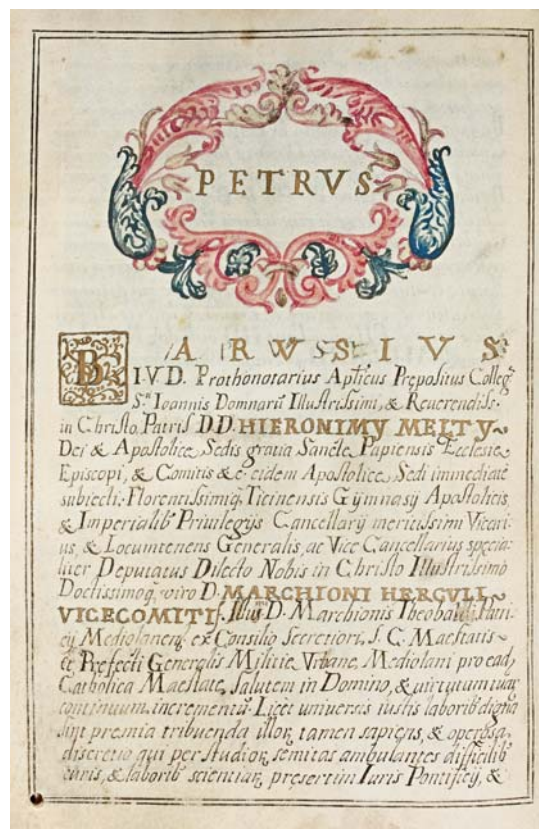 PETRVS
BARVSSIVS
I.V.D. Prothonotarius Aptīcus Prepositus Colleg.
S.ti Ioannis Domnarū Illustrissimi, & Reverendiss.
in Christo Patris D.D. HIERONIMY MELTY
Dei & Apostolice Sedis gratia Sancte Papiensis Ecclesie
Episcopi, & Comitis &c. eidem Apostolice Sedi immediatē
subiecti: Florentissimiq; Ticinensis Gymnasij Apostolicis
& Imperialib' Priuilegijs Cancellarij meritissimi Vicari-
us, & Locumtenens Generalis, ac Vice Cancellarius specia-
liter Deputatus Dilecto Nobis in Christo Illustrissimo
Doctissimoq; viro D. MARCHIONI HERCVLI
VICECOMITI f. Illmi D. Marchionis Theobaldi Patri-
cij Mediolanens ex Consilio Secretiori, S. C. Maestatis
& Prefecti Generalis Militie Vrbane Mediolani pro ead
Catholica Maestate, Salutem in Domino, & uirtutum tuar
continuum incrementū. Licet universis iustis laborib' digna
sint premia tribuenda illor tamen sapiens, & operosa
discretio qui per studior semitas ambulantes difficilib'
curis, & laborib' scientiar, presertim Iuris Pontificij, &